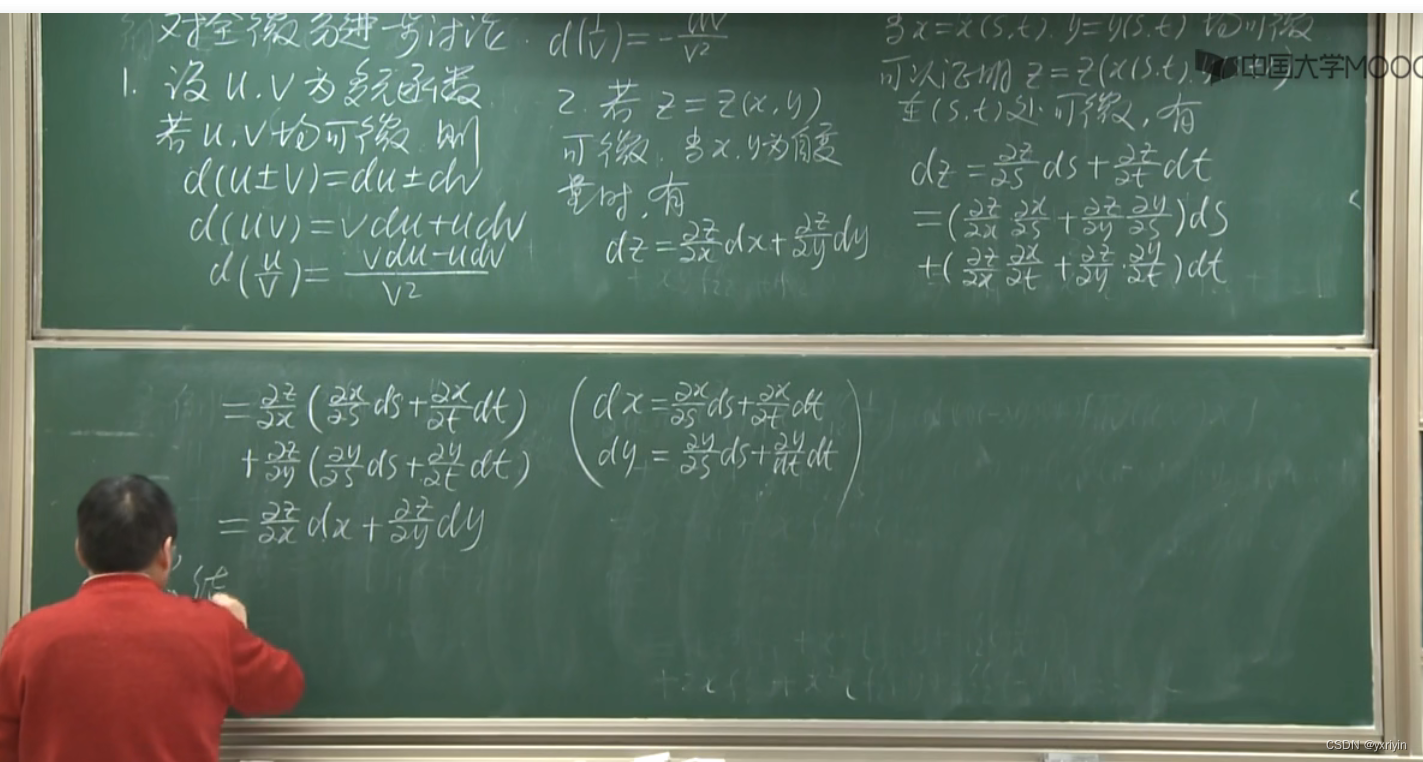 对全微分进一步讨论
1. 设 u.v 为多元函数
若 u.v 均可微 则
d(u±v)=du±dv
d(uv)=vdu+udv
d(u/v)=(vdu-udv)/v²
d(1/v)=-dv/v²
2. 若 z=z(x,y)
可微. 当x.y为自变
量时,有
dz=∂z/∂x dx+∂z/∂y dy
当x=x(s.t).y=y(s.t) 均可微
可以证明 z=z(x(s.t).
在(s.t)处可微,有
dz=∂z/∂s ds+∂z/∂t dt
=(∂z/∂x ∂x/∂s+∂z/∂y ∂y/∂s)ds
+(∂z/∂x ∂x/∂t+∂z/∂y·∂y/∂t)dt
=∂z/∂x(∂x/∂s ds+∂x/∂t dt)
+∂z/∂y(∂y/∂s ds+∂y/∂t dt)
=∂z/∂x dx+∂z/∂y dy
(dx=∂x/∂s ds+∂x/∂t dt
dy=∂y/∂s ds+∂y/∂t dt)
中国大学MOOC
CSDN @yxriyin